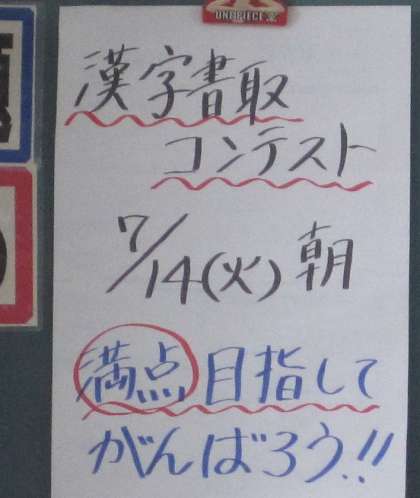 ONE PIECE
漢字書取
コンテスト
7/14(火)朝
満点目指して
がんばろう!!